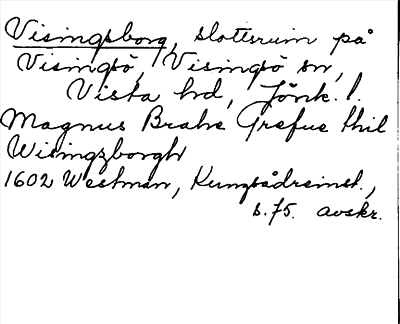 Visingsborg, slottsruin på
Visingsö, Visingsö sn,
Vista hd, Jönk. l.
Magnus Brahe Grefue thil
Wisingzborgh
1602 Westman, Kungsådreinst.,
s. 75. avskr.